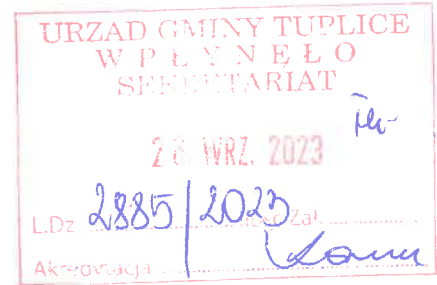 URZĄD GMINY TUPLICE
WPŁYNĘŁO
SEKRETARIAT
28 WRZ. 2023
L.Dz. 2885/2023 Ilość Zał.
Akredytacja